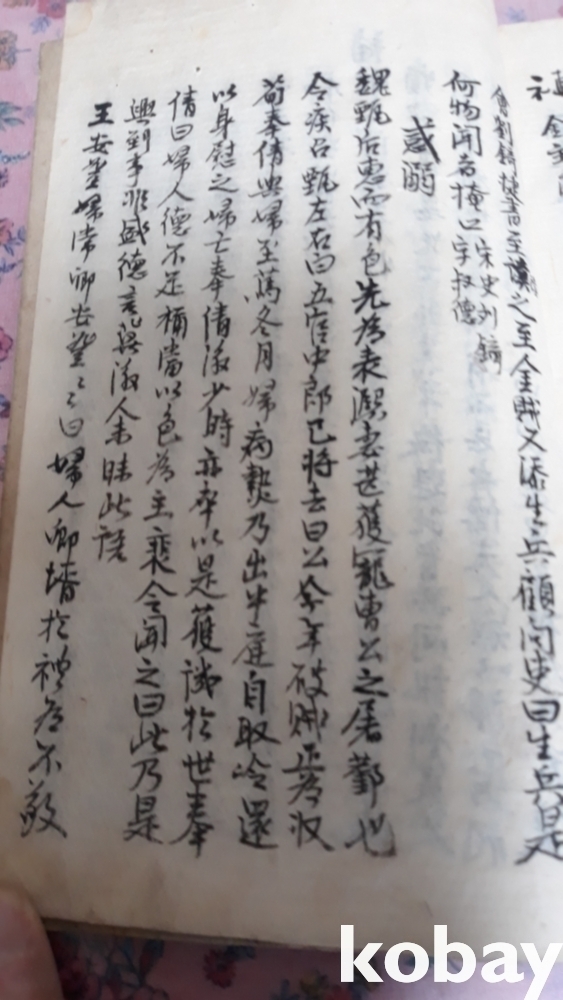 會劉錡捷書至讀之至金賊又添生兵顧問吏曰生兵是
何物聞者掩口 宋史列錡字叔德
惑溺
魏甄后惠而有色先爲袁熙妻甚獲寵曹公之屠鄴也
令疾召甄左右白五官中郎已將去曰公今年破賊正爲奴
荀奉倩與婦至篤冬月婦病熱乃出中庭自取冷還
以身慰之婦亡奉倩後少時亦卒以是獲譏於世奉
倩曰婦人德不足稱當以色爲主裴令聞之曰此乃是
興到事非盛德言冀後人未昧此語
王安豊婦常卿安豊〻〻曰婦人卿壻於禮爲不敬
kobay